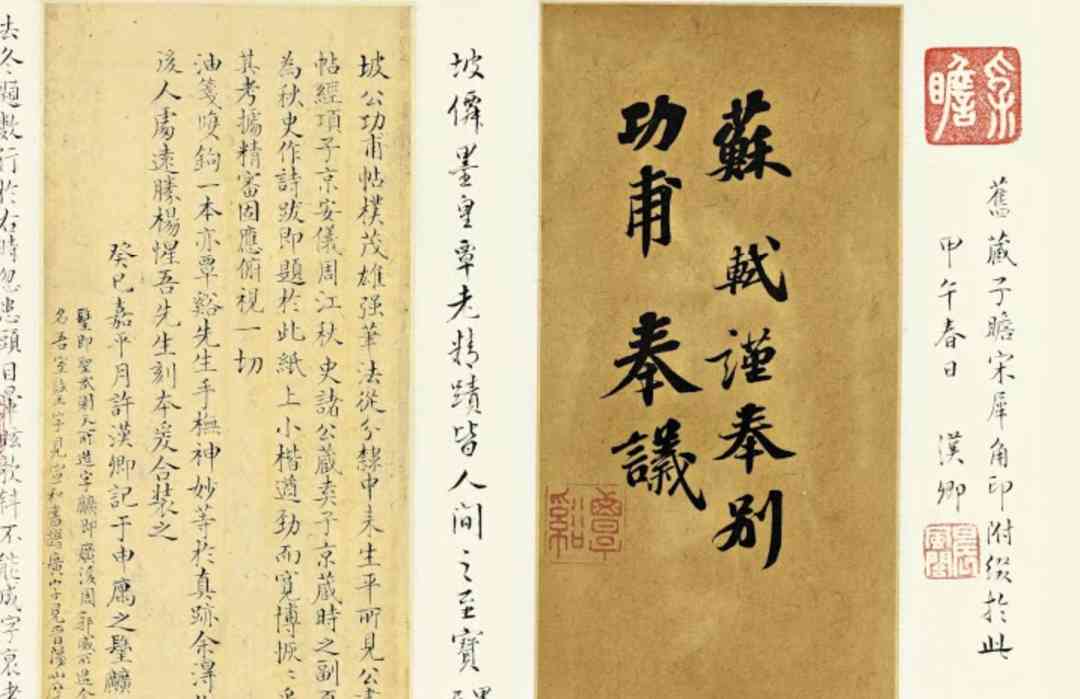 子瞻
舊藏子瞻宋犀角印附綴於此
甲午春日 漢卿
蘇軾謹奉別
功甫奉議
覃谿
坡僊墨皇覃老精蹟皆人間之至寶
坡公功甫帖樸茂雄强筆法從分隸中來生平所見公
帖經項子京安儀周江秋史諸公藏弆子京藏時之副
為秋史作詩跋即題於此紙上小楷遒勁而寬博恢〻
其考據精審固應俯視一切
油箋雙鉤一本亦覃谿先生手橅神妙等於真跡余得
後人處遠勝楊惺吾先生刻本爰合裝之
癸巳嘉平月許漢卿記于申
去冬題數行於右時忽患頭目暈眩欹斜不能成字